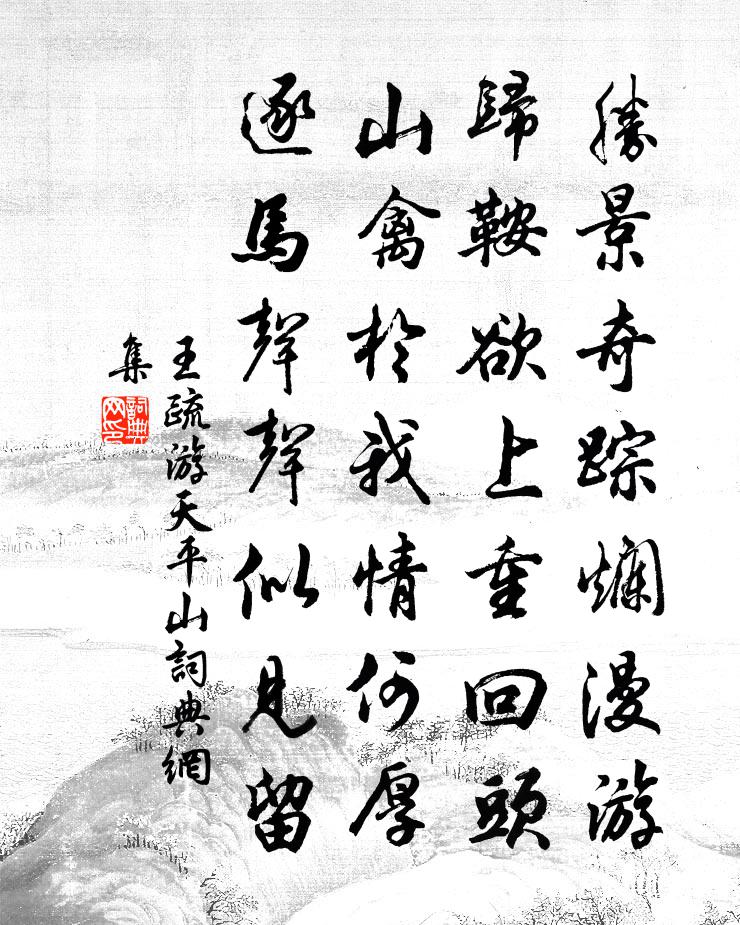 勝景奇踪爛漫游
歸鞍欲上重回頭
山禽於我情何厚
逐馬聲聲似見留
王疏游天平山詞典網
集
詞典
网印